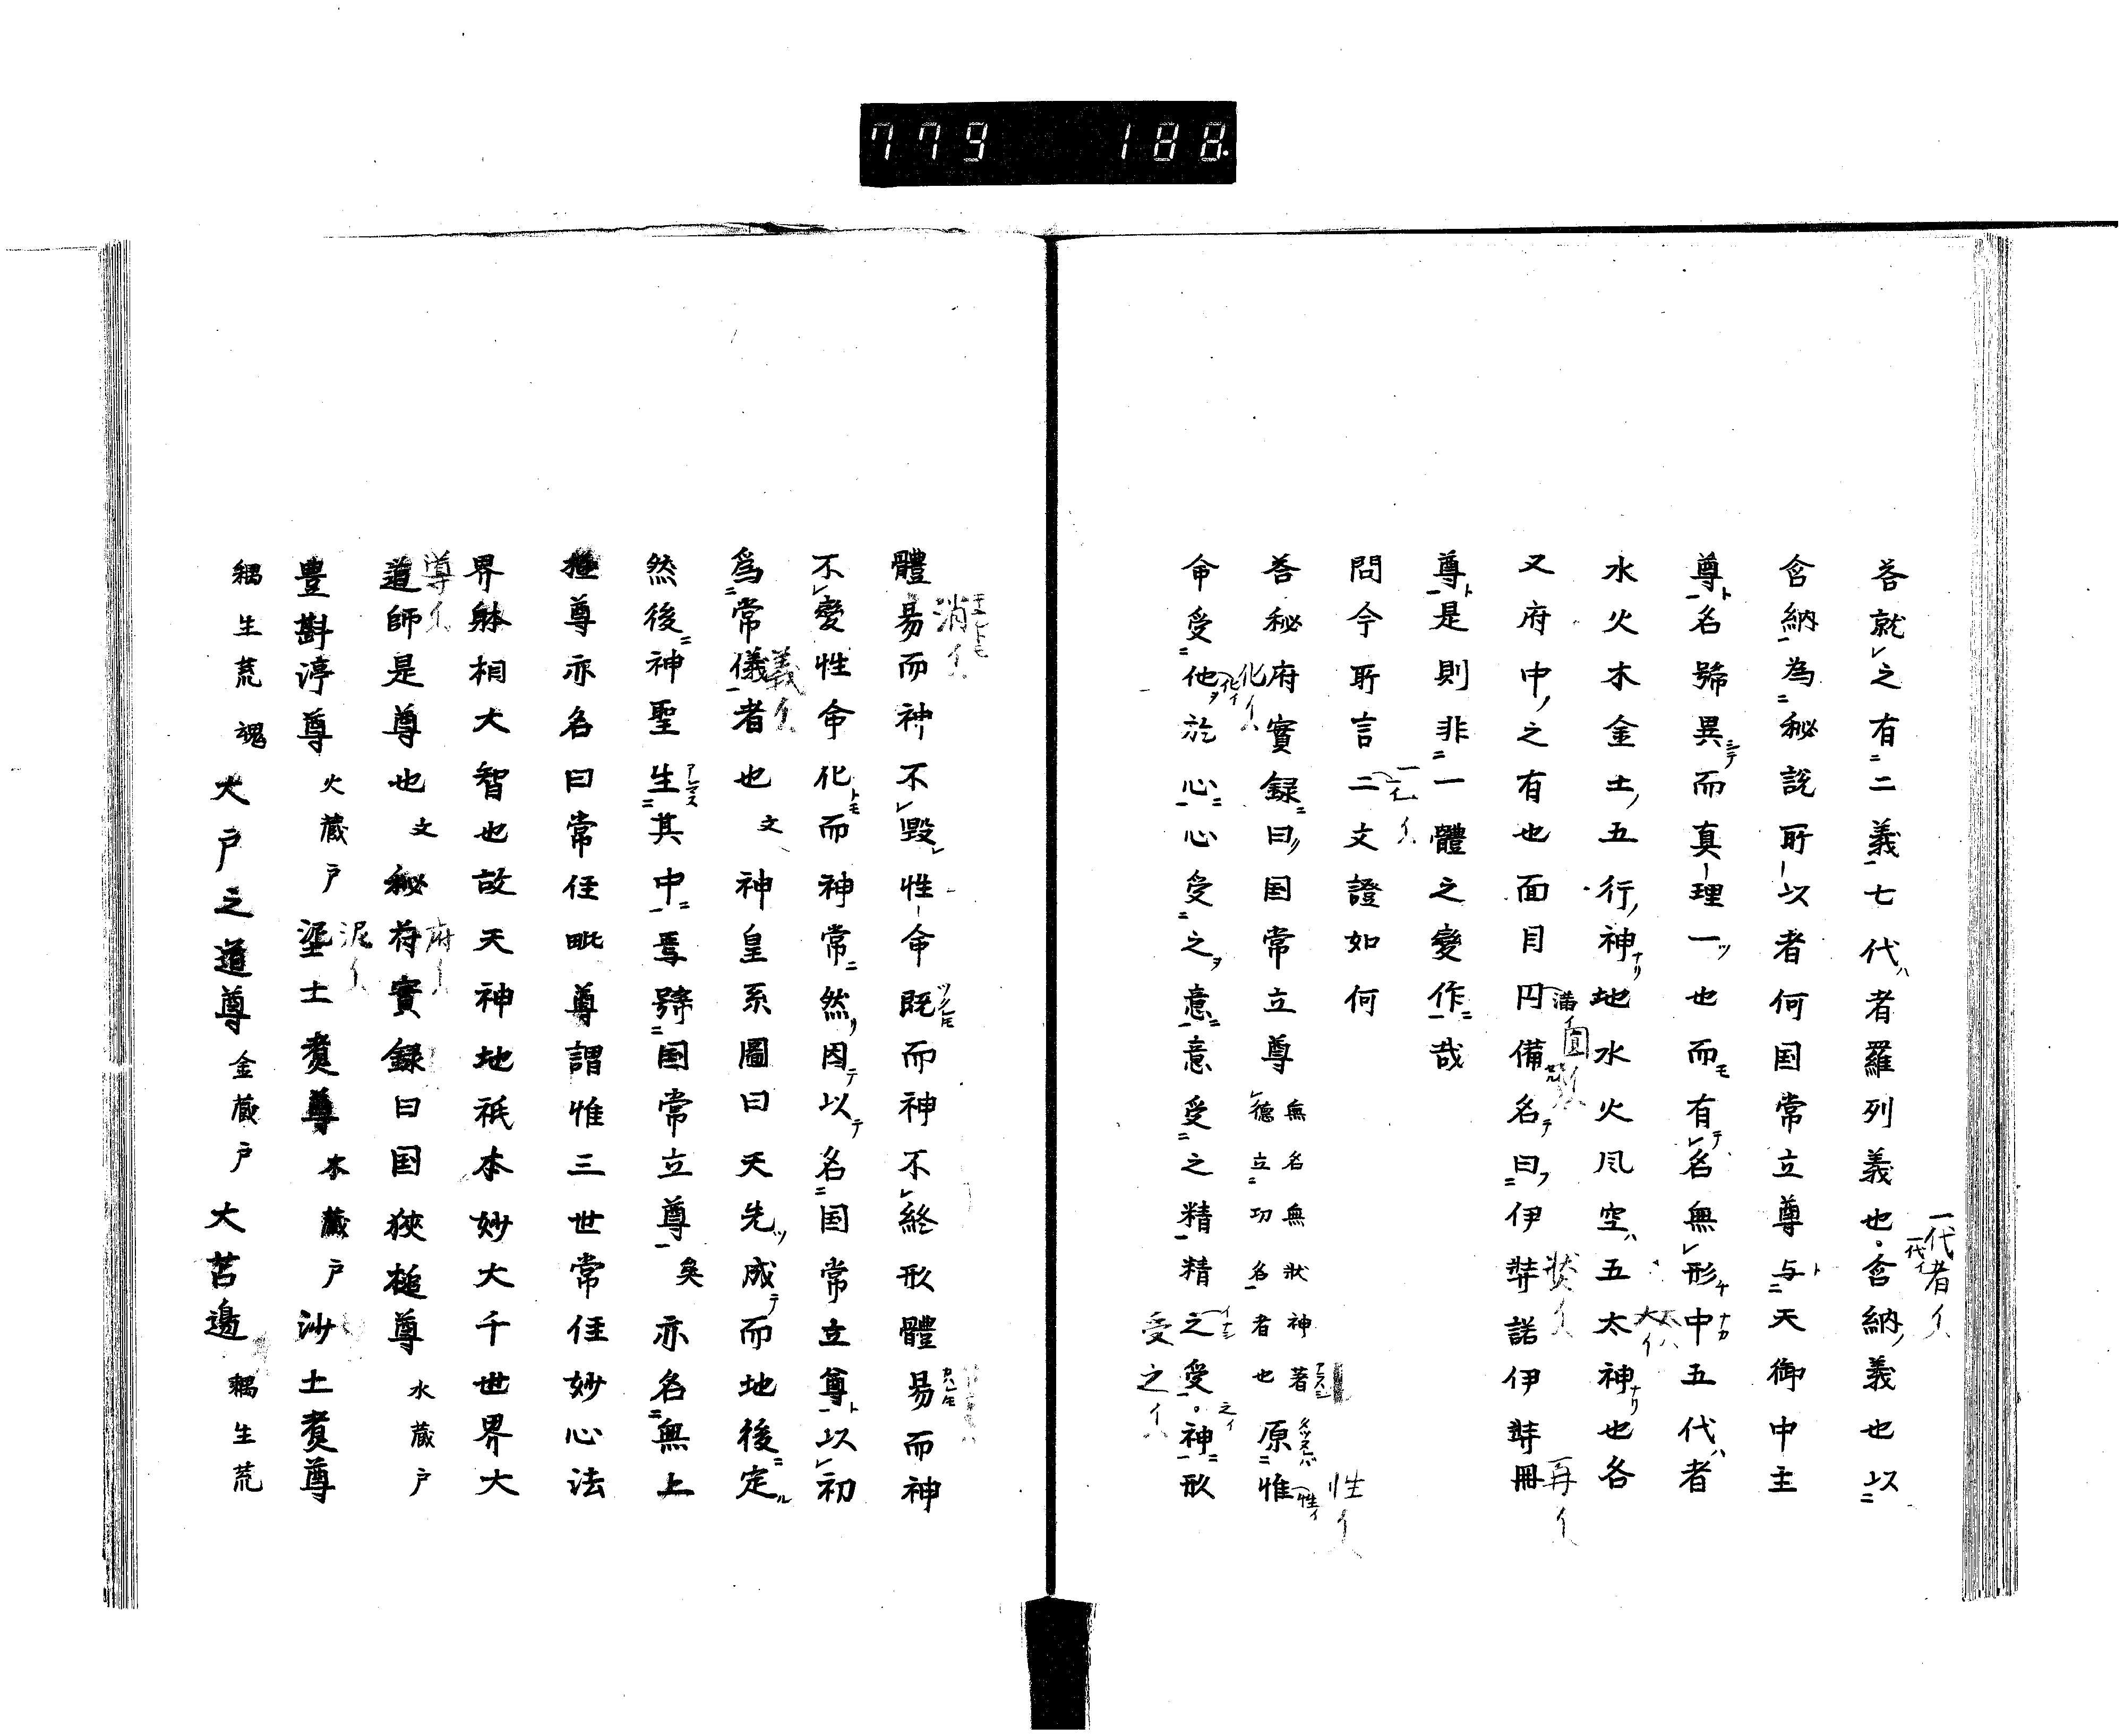 779 188
荅就之有二義七代者羅列義也含納義也以
含納為秘説所以者何国常立尊与天御中主
尊名號異而真理一也而有名無形中五代者
水火木金土五行神地水火風空五太神也各
又府中之有也面目円備名曰伊弉諾伊弉冊
尊是則非一體之變作哉
問今所言二文證如何
荅秘府實録曰国常立尊無名無状神著德立功名者也原惟
命受他於心心受之意意受之精精之受神形
體易而神不毀性命既而神不終形體易而神
不變性命化而神常然因以名国常立尊以初
爲常儀者也文神皇系圖曰天先成而地後定
然後神聖生其中焉號国常立尊矣亦名無上
極尊亦名曰常住毗尊謂惟三世常住妙心法
界躰相大智也故天神地祇本妙大千世界大
道師是尊也文秘府實録曰国狹槌尊水蔵戸
豊斟渟尊火蔵戸埿土煑尊木蔵戸沙土煑尊
耦生荒魂大戸之道尊金蔵戸大苫邊耦生荒